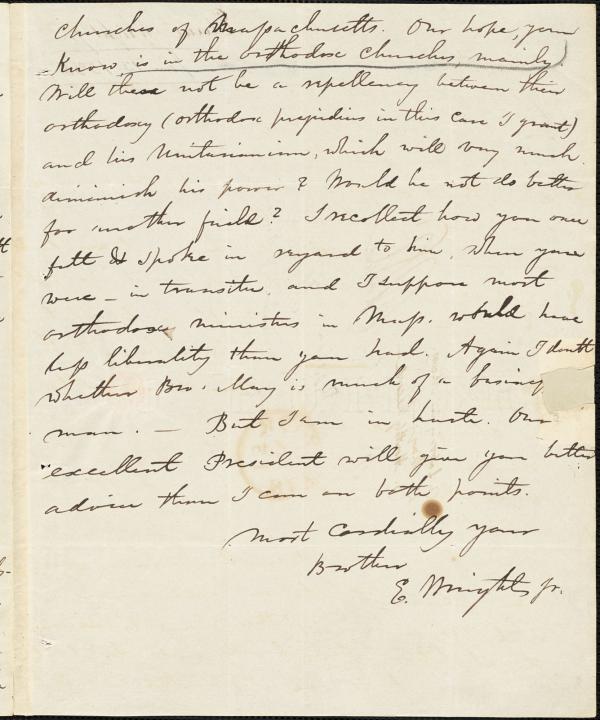 churches of Massachusetts. Our hope, you
know, is in the orthodox churches, mainly.
Will there not be a repellency between their
orthodoxy (orthodox prejudices in this case I grant)
and his Unitarianism, which will very much
diminish his power? Would he not do better
for another field? I recollect how you once
felt & spoke in regard to him, when you
were – in transitu, and I suppose most
orthodox ministers in Mass. would have
less liberality than you had. Again I doubt
whether Bro. May is much of a business
man. — But I am in haste. Our
excellent President will give you better
advice than I can on both points.
Most cordially your
Brother
E. Wright, Jr.